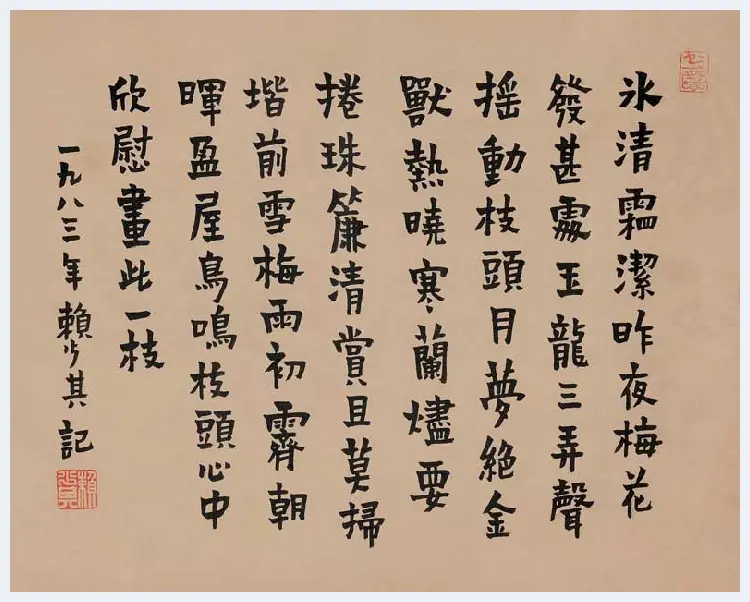 氷清霜潔昨夜梅花
發甚處玉龍三弄聲
搖動枝頭月夢絕金
獸熱曉寒蘭燼要
捲珠簾清賞且莫掃
堦前雪梅雨初霽朝
暉盈屋鳥鳴枝頭心中
欣慰畫此一枝
一九八三年賴少其記